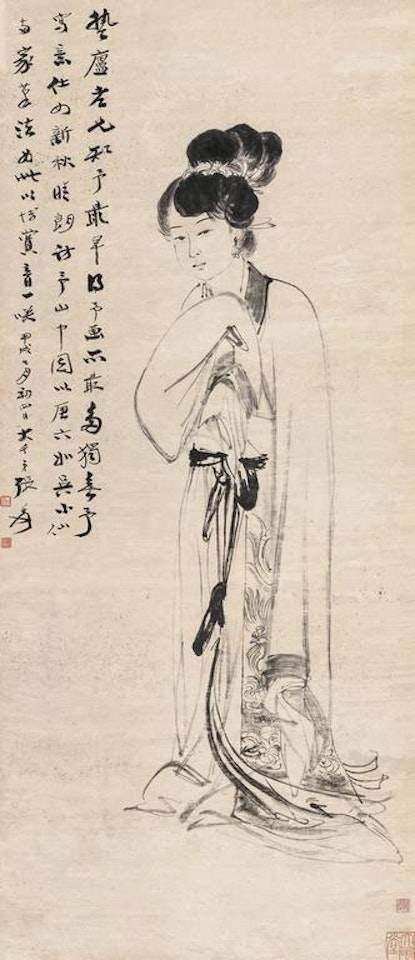 蟄廬老兄知予最早得予画亦最多獨喜予
寫意仕女新秋晴朗訪予山中因以唐六如吳小仙
两家筆法為此以博賞音一咲甲戌七月初四日大千弟張爰